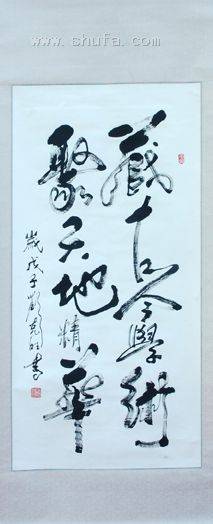 www.shufa.com
藏古今學術
聚天地精華
歲戊子
書